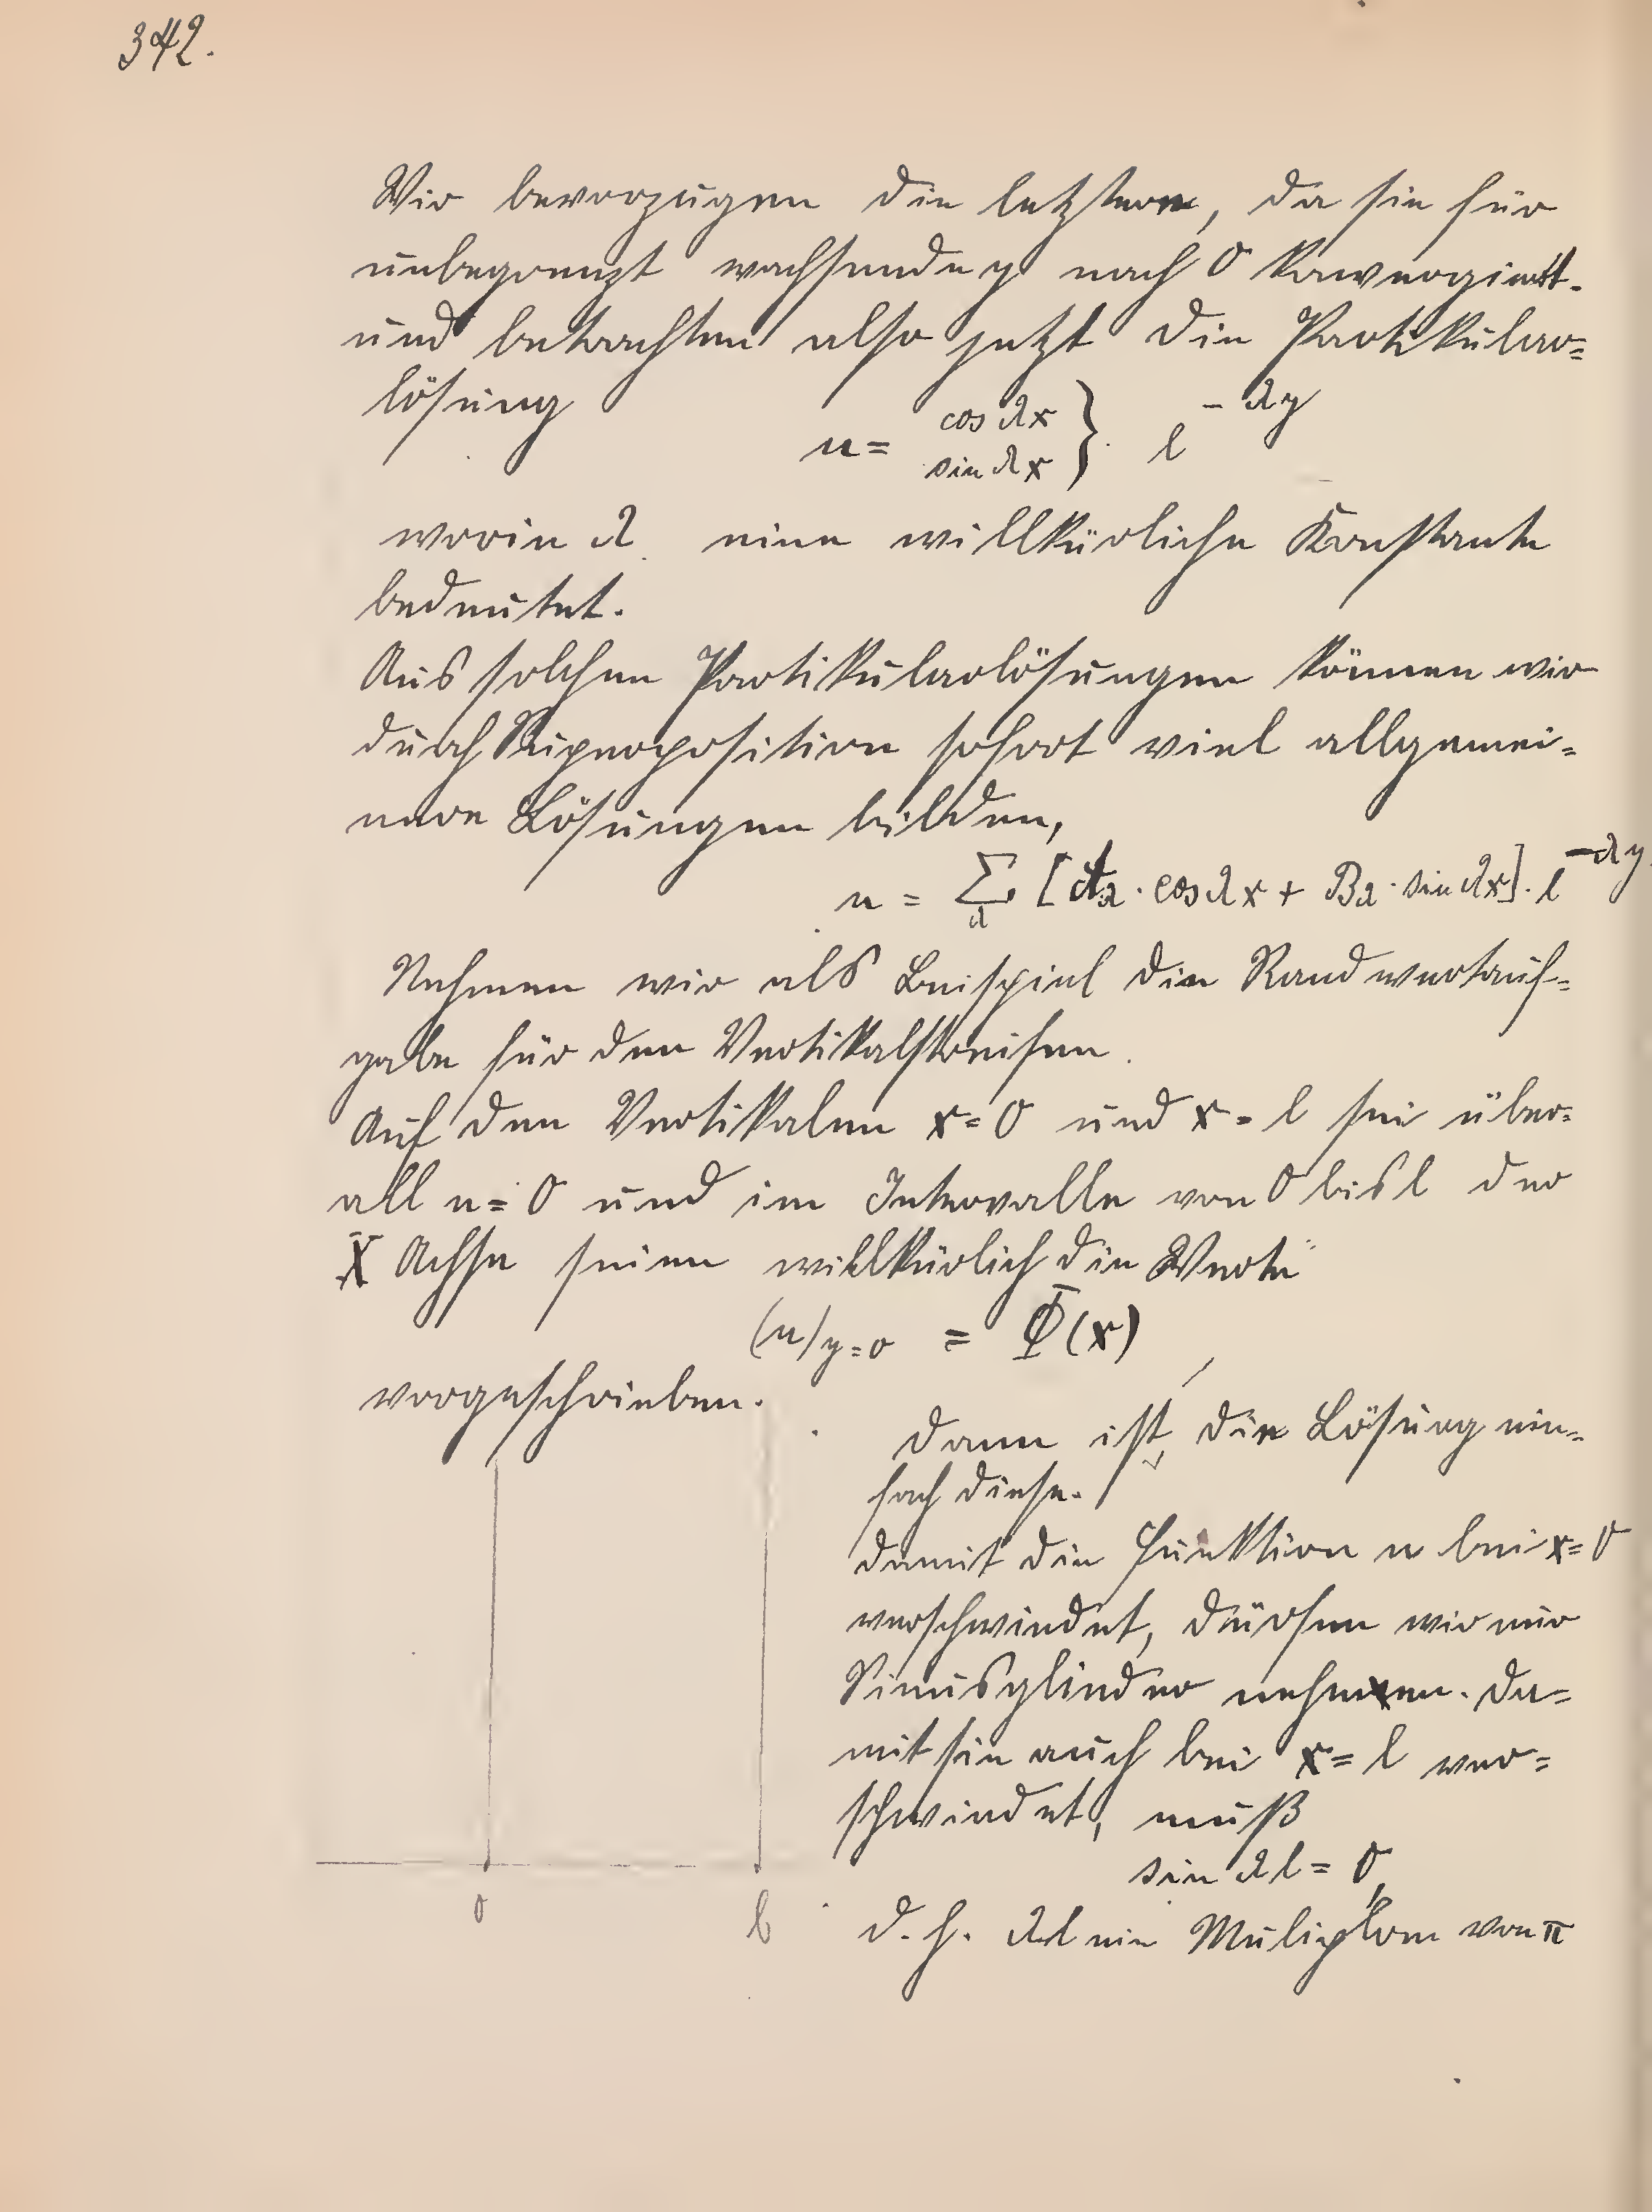 342.
Wir bevorzugen die letztere, da sie für
unbegrenzt wachsende y nach 0 konvergiert.
und betrachten also jetzt die Partikular=
lösung
u = cos λx
sin λx } · e^{-λy}
worin λ eine willkürliche Konstante
bedeutet.
Aus solchen Partikularlösungen können wir
durch Superposition sofort viel allgemei=
nere Lösungen bilden,
u = Σ_λ [A_λ · cos λx + B_λ · sin λx] · e^{-λy}.
Nehmen wir als Beispiel die Randwertauf=
gabe für den Vertikalstreifen.
Auf den Vertikalen x=0 und x=l sei über=
all u=0 und im Intervalle von 0 bis l der
X Achse seien willkürlich die Werte
(u)_{y=0} = Φ(x)
vorgeschrieben.
Dann ist die Lösung ein=
fach diese.
damit die Funktion u bei x=0
verschwindet, dürfen wir nur
Sinusglieder nehmen. Da=
mit sie auch bei x=l ver=
schwindet, muß
sin λl = 0,
d.h. λl ein Muliplom von π
0
l